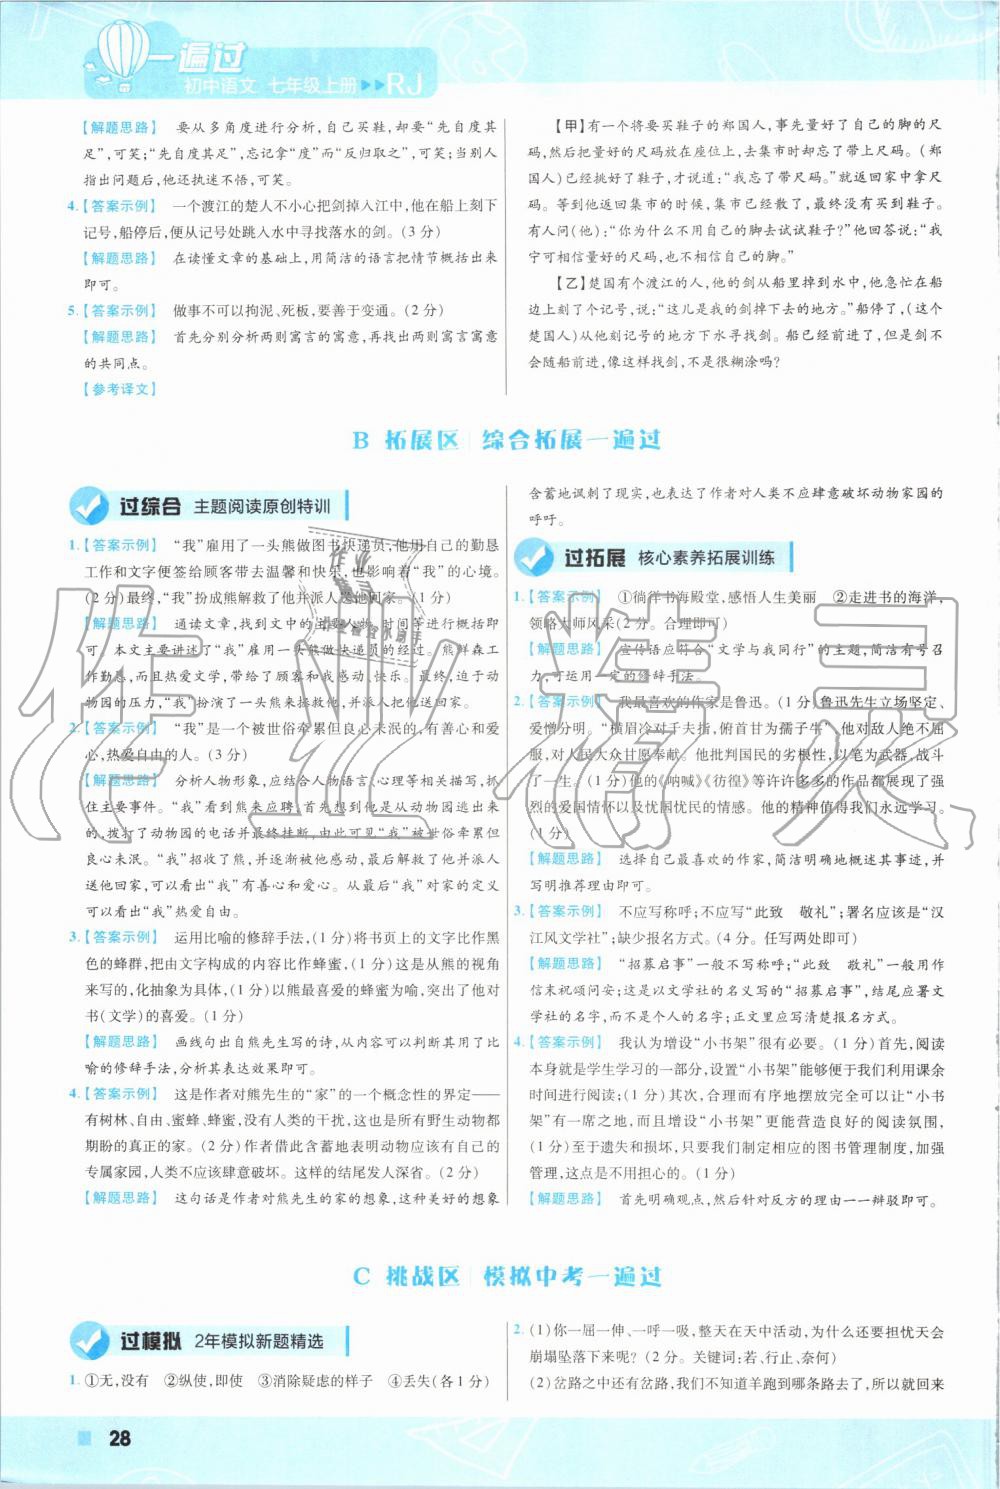 一遍过
初中语文 七年级上册 RJ
【解题思路】 要从多角度进行分析,自己买鞋,却要“先自度其
足”,可笑;“先自度其足”,忘记拿“度”而“反归取之”,可笑;当别人
指出问题后,他还执迷不悟,可笑。
4.【答案示例】 一个渡江的楚人不小心把剑掉入江中,他在船上刻下
记号,船停后,便从记号处跳入水中寻找落水的剑。(3 分)
【解题思路】 在读懂文章的基础上,用简洁的语言把情节概括出来
即可。
5.【答案示例】 做事不可以拘泥、死板,要善于变通。(2 分)
【解题思路】 首先分别分析两则寓言的寓意,再找出两则寓言寓意
的共同点。
【参考译文】
【甲】有一个将要买鞋子的郑国人,事先量好了自己的脚的尺
码,然后把量好的尺码放在座位上,去集市时却忘了带上尺码。(郑
国人)已经挑好了鞋子,才说道:“我忘了带尺码。”就返回家中拿尺
码。等到他又返回集市的时候,集市已经散了,最终没有买到鞋子。
有人问(他):“你为什么不用自己的脚去试试鞋子?”他回答说:“我
宁可相信量好的尺码,也不相信自己的脚。”
【乙】楚国有个渡江的人,他的剑从船里掉到水中,他急忙在船
边上刻了个记号,说:“这儿是我的剑掉下去的地方。”船停了,(这个
楚国人)从他刻记号的地方下水寻找剑。船已经前进了,但是剑不
会随船前进,像这样找剑,不是很糊涂吗?
B 拓展区 综合拓展一遍过
过综合 主题阅读原创特训
1.【答案示例】 “我”雇用了一头熊做图书快递员,他用自己的勤恳
工作和文字便签给顾客带去温馨和快乐,也影响着“我”的心境。
(2 分)最终,“我”扮成熊解救了他并派人送他回家。(1 分)
【解题思路】 通读文章,找到文中的主要人物、时间等进行概括即
可。本文主要讲述了“我”雇用一头熊做快递员的经过。熊鲜森工
作勤恳,而且热爱文学,带给了顾客和我感动、快乐。最终,迫于动
物园的压力,“我”扮演了一头熊来拯救他,并派人送他回家。
2.【答案示例】 “我”是一个被世俗牵累但良心未泯的,有善心和爱
心,热爱自由的人。(3 分)
【解题思路】 分析人物形象,应结合人物语言、心理等相关描写,抓
住主要事件。“我”看到熊来应聘,首先想到他是从动物园逃出来
的,拨打了动物园的电话并最终挂断,由此可见“我”被世俗牵累但
良心未泯。“我”招收了熊,并逐渐被他感动,解救了他并派人
送他回家,可以看出“我”有善心和爱心。从最后“我”对家的定义
可以看出“我”热爱自由。
3.【答案示例】 运用比喻的修辞手法,(1 分)将书页上的文字比作黑
色的蜂群,把由文字构成的内容比作蜂蜜,(1 分)这是从熊的视角
来写的,化抽象为具体,(1 分)以熊最喜爱的蜂蜜为喻,突出了他对
书(文学)的喜爱。(1 分)
【解题思路】 画线句出自熊先生写的诗,从内容可以看出,使用了比
喻的修辞手法,分析其表达效果即可。
4.【答案示例】 这是作者对熊先生的“家”的一个概念性的界定——
有树林、自由、蜜蜂、蜂蜜,没有人类的干扰,这也是所有野生动物都
期盼的真正的家。(2 分)作者借此含蓄地表明动物应该有自己的
专属家园,人类不应该肆意破坏。这样的结尾发人深省。(2 分)
【解题思路】 这句话是作者对熊先生的家的想象,这种美好的想象
含蓄地讽刺了现实,也表达了作者对人类不应肆意破坏动物家园的
呼吁。
过拓展 核心素养拓展训练
1.【答案示例】 ①徜徉书海殿堂,感悟人生美丽 ②走进书的海洋,
领略大师风采(2 分。合理即可)
【解题思路】 宣传语应符合“文学与我同行”的主题,简洁有号召
力,可运用一定的修辞手法。
2.【答案示例】 我最喜欢的作家是鲁迅。(1 分)鲁迅先生立场坚定、
爱憎分明。“横眉冷对千夫指,俯首甘为孺子牛”,他对敌人绝不屈
服,对人民大众甘愿奉献。他批判国民的劣根性,以笔为武器,战斗
了一生。(1 分)他的《呐喊》《彷徨》等许许多多的作品都展现了强
烈的爱国情怀以及忧国忧民的情感。他的精神值得我们永远学习。
(1 分)
【解题思路】 选择自己最喜欢的作家,简洁明确地概述其事迹,并
写明推荐理由即可。
3.【答案示例】 不应写称呼;不应写“此致 敬礼”;署名应该是“汉
江风文学社”;缺少报名方式。(4 分。任写两处即可)
【解题思路】 “招募启事”一般不写称呼;“此致 敬礼”一般用作
信末祝颂问安;这是以文学社的名义写的“招募启事”,结尾应署文
学社的名字,而不是个人的名字;正文里应写清楚报名方式。
4.【答案示例】 我认为增设“小书架”很有必要。(1 分)首先,阅读
本身就是学生学习的一部分,设置“小书架”能够便于我们利用课余
时间进行阅读;(1 分)其次,合理而有序地摆放完全可以让“小书
架”有一席之地,而且增设“小书架”更能营造良好的阅读氛围,
(1 分)至于遗失和损坏,只要我们制定相应的图书管理制度,加强
管理,这点是不用担心的。(1 分)
【解题思路】 首先明确观点,然后针对反方的理由一一辩驳即可。
C 挑战区 模拟中考一遍过
过模拟 2年模拟新题精选
1. ①无,没有 ②纵使,即使 ③消除疑虑的样子 ④丢失(各 1 分)
2. (1)你一屈一伸、一呼一吸,整天在天中活动,为什么还要担忧天会
崩塌坠落下来呢?(2 分。关键词:若、行止、奈何)
(2)岔路之中还有岔路,我们不知道羊跑到哪条路去了,所以就回来
28
作业精灵